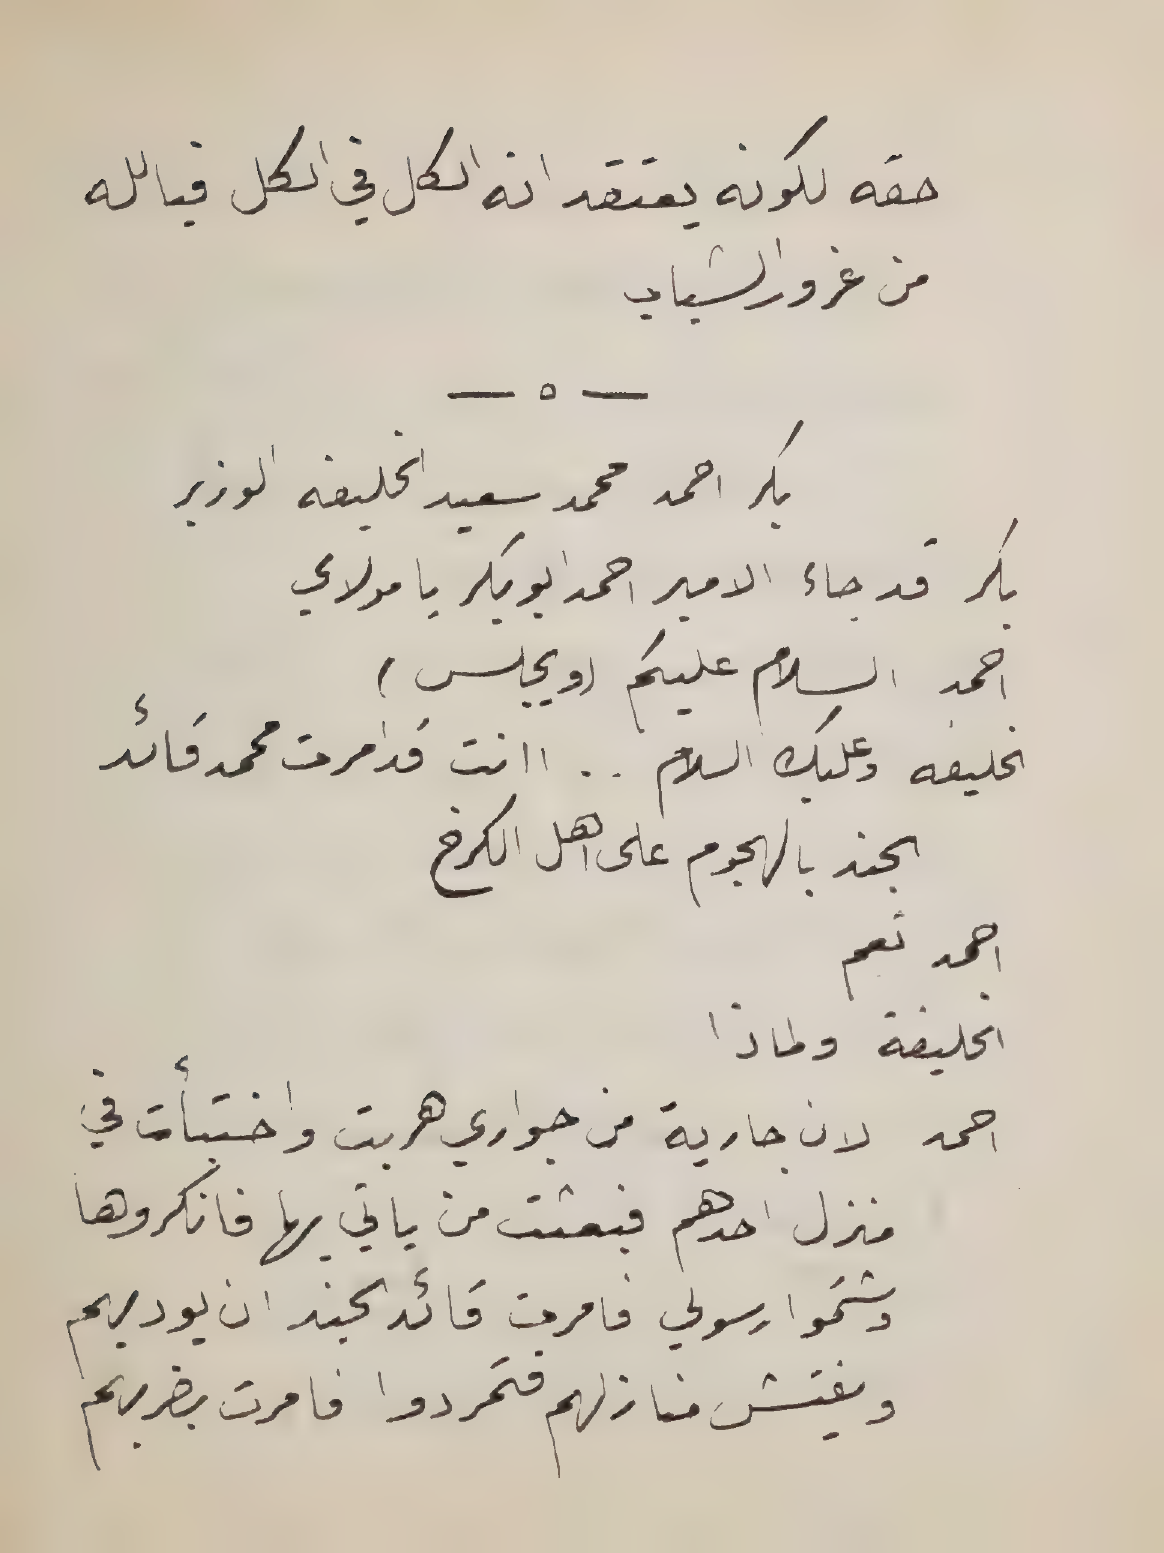 حقه لكونه يعتقد انه الكل في الكل فيالله
من غرور الشباب
— ٥ —
بكر احمد محمد سعيد الخليفه الوزير
بكر قد جاء الامير احمد ابو بكر يا مولاي
احمد السلام عليكم (ويجلس)
الخليفه وعليك السلام .. اانت قد امرت محمد قائد
الجند بالهجوم على اهل الكرخ
احمد نعم
الخليفة ولماذا
احمد لان جارية من جواري هربت واختبأت في
منزل احدهم فبعثت من ياتي بها فانكروها
وشتموا رسولي فامرت قائد الجند ان يوديهم
ويفتش منازلهم فتمردوا فامرت بضربهم